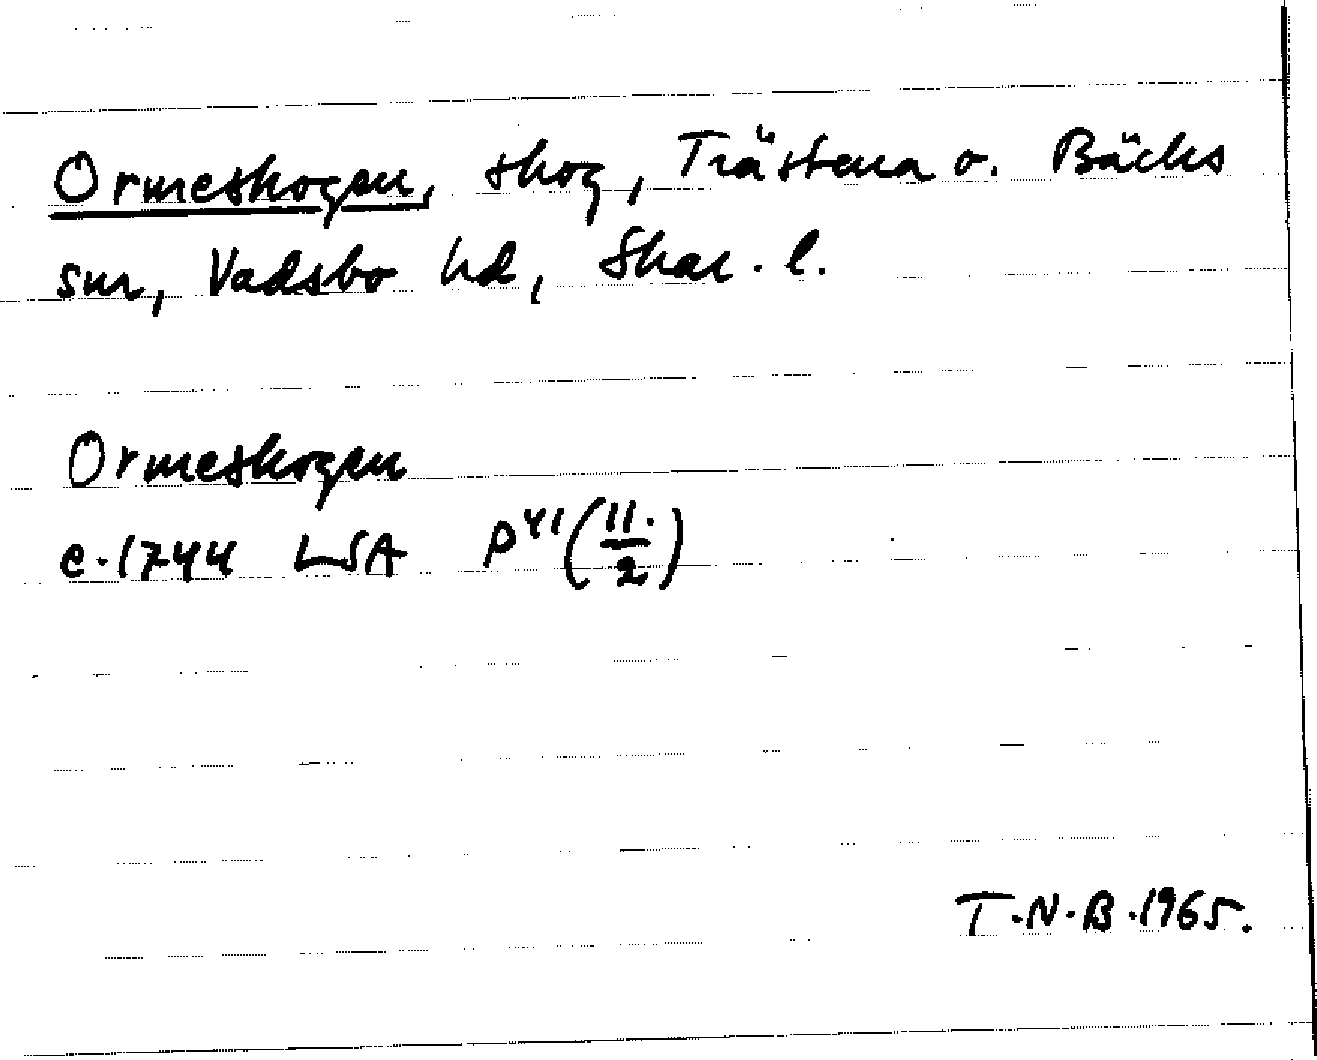 Ormeskogen, skog, Trästena o. Bäcks
snr, Vadsbo hd, Skar. l.
Ormeskogen
c. 1744 LSA P41 (11./2)
T.N.B. 1965.